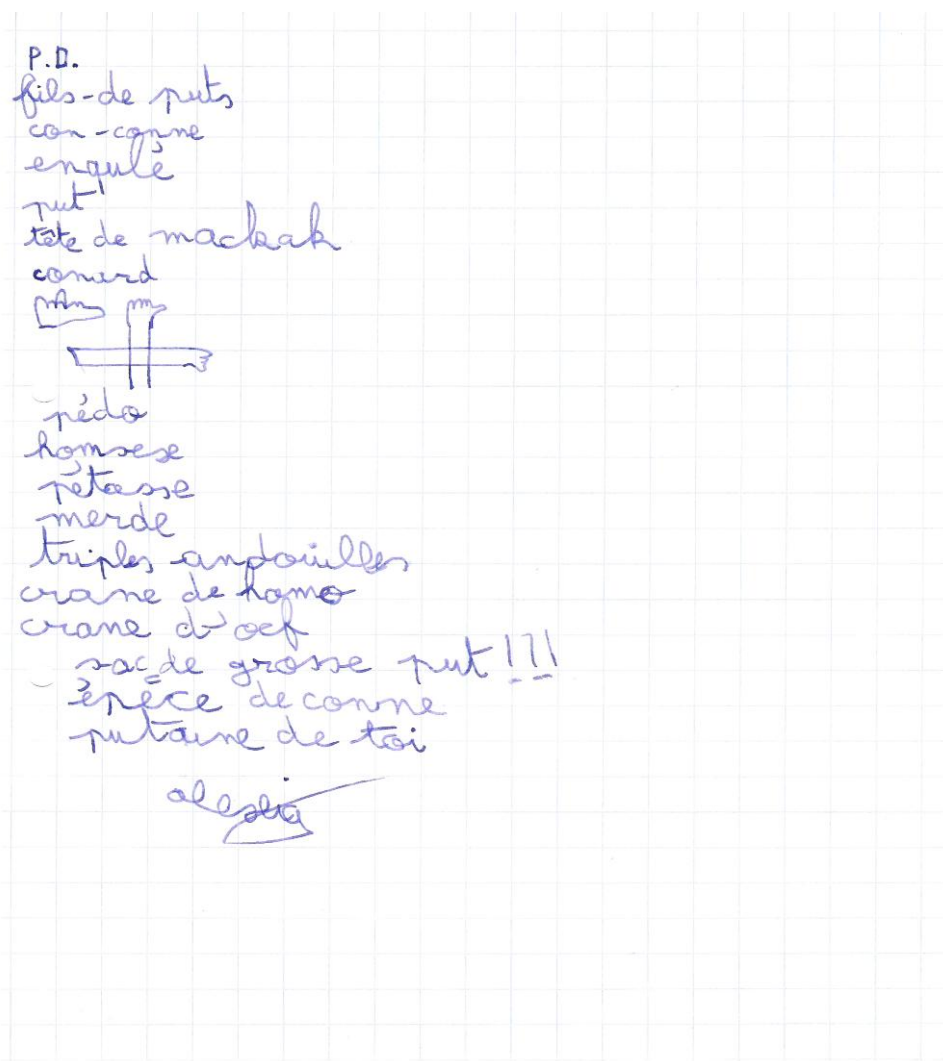 P.D.
fils-de puts
con-conne
enqulé
put'
tête de mackak
conurd
pédo
homsexe
pétasse
merde
triples andouilles
crane de homo
crane d'oef
sac de grosse put !!!
épéce de conne
putaine de toi